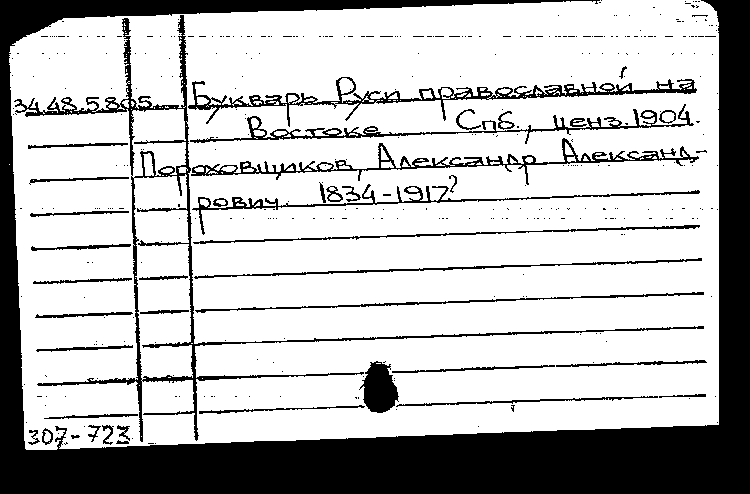 34.48.5.805. Букварь Руси православной на
Востоке Спб., ценз. 1904.
Пороховщиков, Александр Александ-
рович. 1834-1917?
307-723